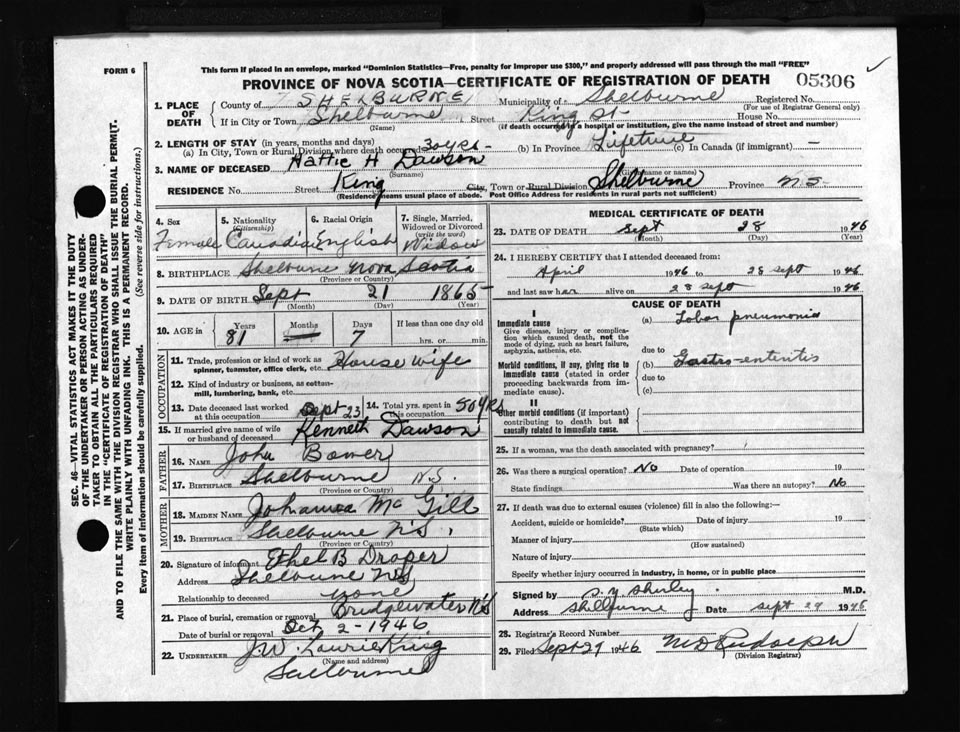 FORM 6
This form if placed in an envelope, marked "Dominion Statistics—Free, penalty for improper use $300," and properly addressed will pass through the mail "FREE"
PROVINCE OF NOVA SCOTIA—CERTIFICATE OF REGISTRATION OF DEATH 05306
1. PLACE OF DEATH County of SHELBURNE Municipality of Shelburne Registered No.
(For use of Registrar General only)
If in City or Town Shelburne Street King St House No.
(Name) (If death occurred in a hospital or institution, give the name instead of street and number)
2. LENGTH OF STAY (in years, months and days)
(a) In City, Town or Rural Division where death occurred 30 yrs - (b) In Province Lifetime (c) In Canada (if immigrant) —
3. NAME OF DECEASED Hattie H Dawson
(Surname) (Given name or names)
RESIDENCE No. Street King City, Town or Rural Division Shelburne Province N.S
(Residence means usual place of abode. Post Office Address for residents in rural parts not sufficient)
4. Sex Female
5. Nationality (Citizenship) Canadian
6. Racial Origin English
7. Single, Married, Widowed or Divorced (write the word) Widow
8. BIRTHPLACE Shelburne Nova Scotia
(Province or Country)
9. DATE OF BIRTH Sept 21 1865
(Month) (Day) (Year)
10. AGE in Years Months Days If less than one day old
81 7 hrs. or min.
OCCUPATION
11. Trade, profession or kind of work as spinner, teamster, office clerk, etc. House wife
12. Kind of industry or business, as cotton-mill, lumbering, bank, etc.
13. Date deceased last worked at this occupation Sept 23
14. Total yrs. spent in this occupation 50 yrs
15. If married give name of wife or husband of deceased Kenneth Dawson
FATHER
16. NAME John Bower
17. BIRTHPLACE Shelburne N.S.
(Province or Country)
MOTHER
18. MAIDEN NAME Johanna Mc Gill
19. BIRTHPLACE Shelburne N.S.
(Province or Country)
20. Signature of informant Ethel B Draper
Address Shelburne N.S
Relationship to deceased none
21. Place of burial, cremation or removal Bridgewater N.S
Date of burial or removal Oct 2 - 1946
22. UNDERTAKER J.W. Laurie King
(Name and address)
Shelburne
MEDICAL CERTIFICATE OF DEATH
23. DATE OF DEATH Sept 28 1946
(Month) (Day) (Year)
24. I HEREBY CERTIFY that I attended deceased from:
April 1946 to 28 sept 1946
and last saw her alive on 28 sept 1946
CAUSE OF DEATH
I
Immediate cause
Give disease, injury or complication which caused death, not the mode of dying, such as heart failure, asphyxia, asthenia, etc.
(a) Lobar pneumonia
due to
Morbid conditions, if any, giving rise to immediate cause (stated in order proceeding backwards from immediate cause).
(b) Gastro-enteritis
due to
(c)
II
Other morbid conditions (if important) contributing to death but not causally related to immediate cause.
25. If a woman, was the death associated with pregnancy?
26. Was there a surgical operation? No Date of operation 19
State findings Was there an autopsy? No
27. If death was due to external causes (violence) fill in also the following:—
Accident, suicide or homicide? Date of injury 19
(State which)
Manner of injury
(How sustained)
Nature of injury
Specify whether injury occurred in industry, in home, or in public place
Signed by S.Y. Shirley M.D.
Address Shelburne Date sept 29 1946
28. Registrar's Record Number
29. Filed Sept 29 1946 M D Rudolph
(Division Registrar)
SEC. 46—VITAL STATISTICS ACT MAKES IT THE DUTY
OF THE UNDERTAKER OR PERSON ACTING AS UNDER-
TAKER TO OBTAIN ALL THE PARTICULARS REQUIRED
IN THE "CERTIFICATE OF REGISTRATION OF DEATH"
AND TO FILE THE SAME WITH THE DIVISION REGISTRAR WHO SHALL ISSUE THE BURIAL PERMIT.
WRITE PLAINLY WITH UNFADING INK. THIS IS A PERMANENT RECORD.
Every item of information should be carefully supplied. (See reverse side for instructions.)